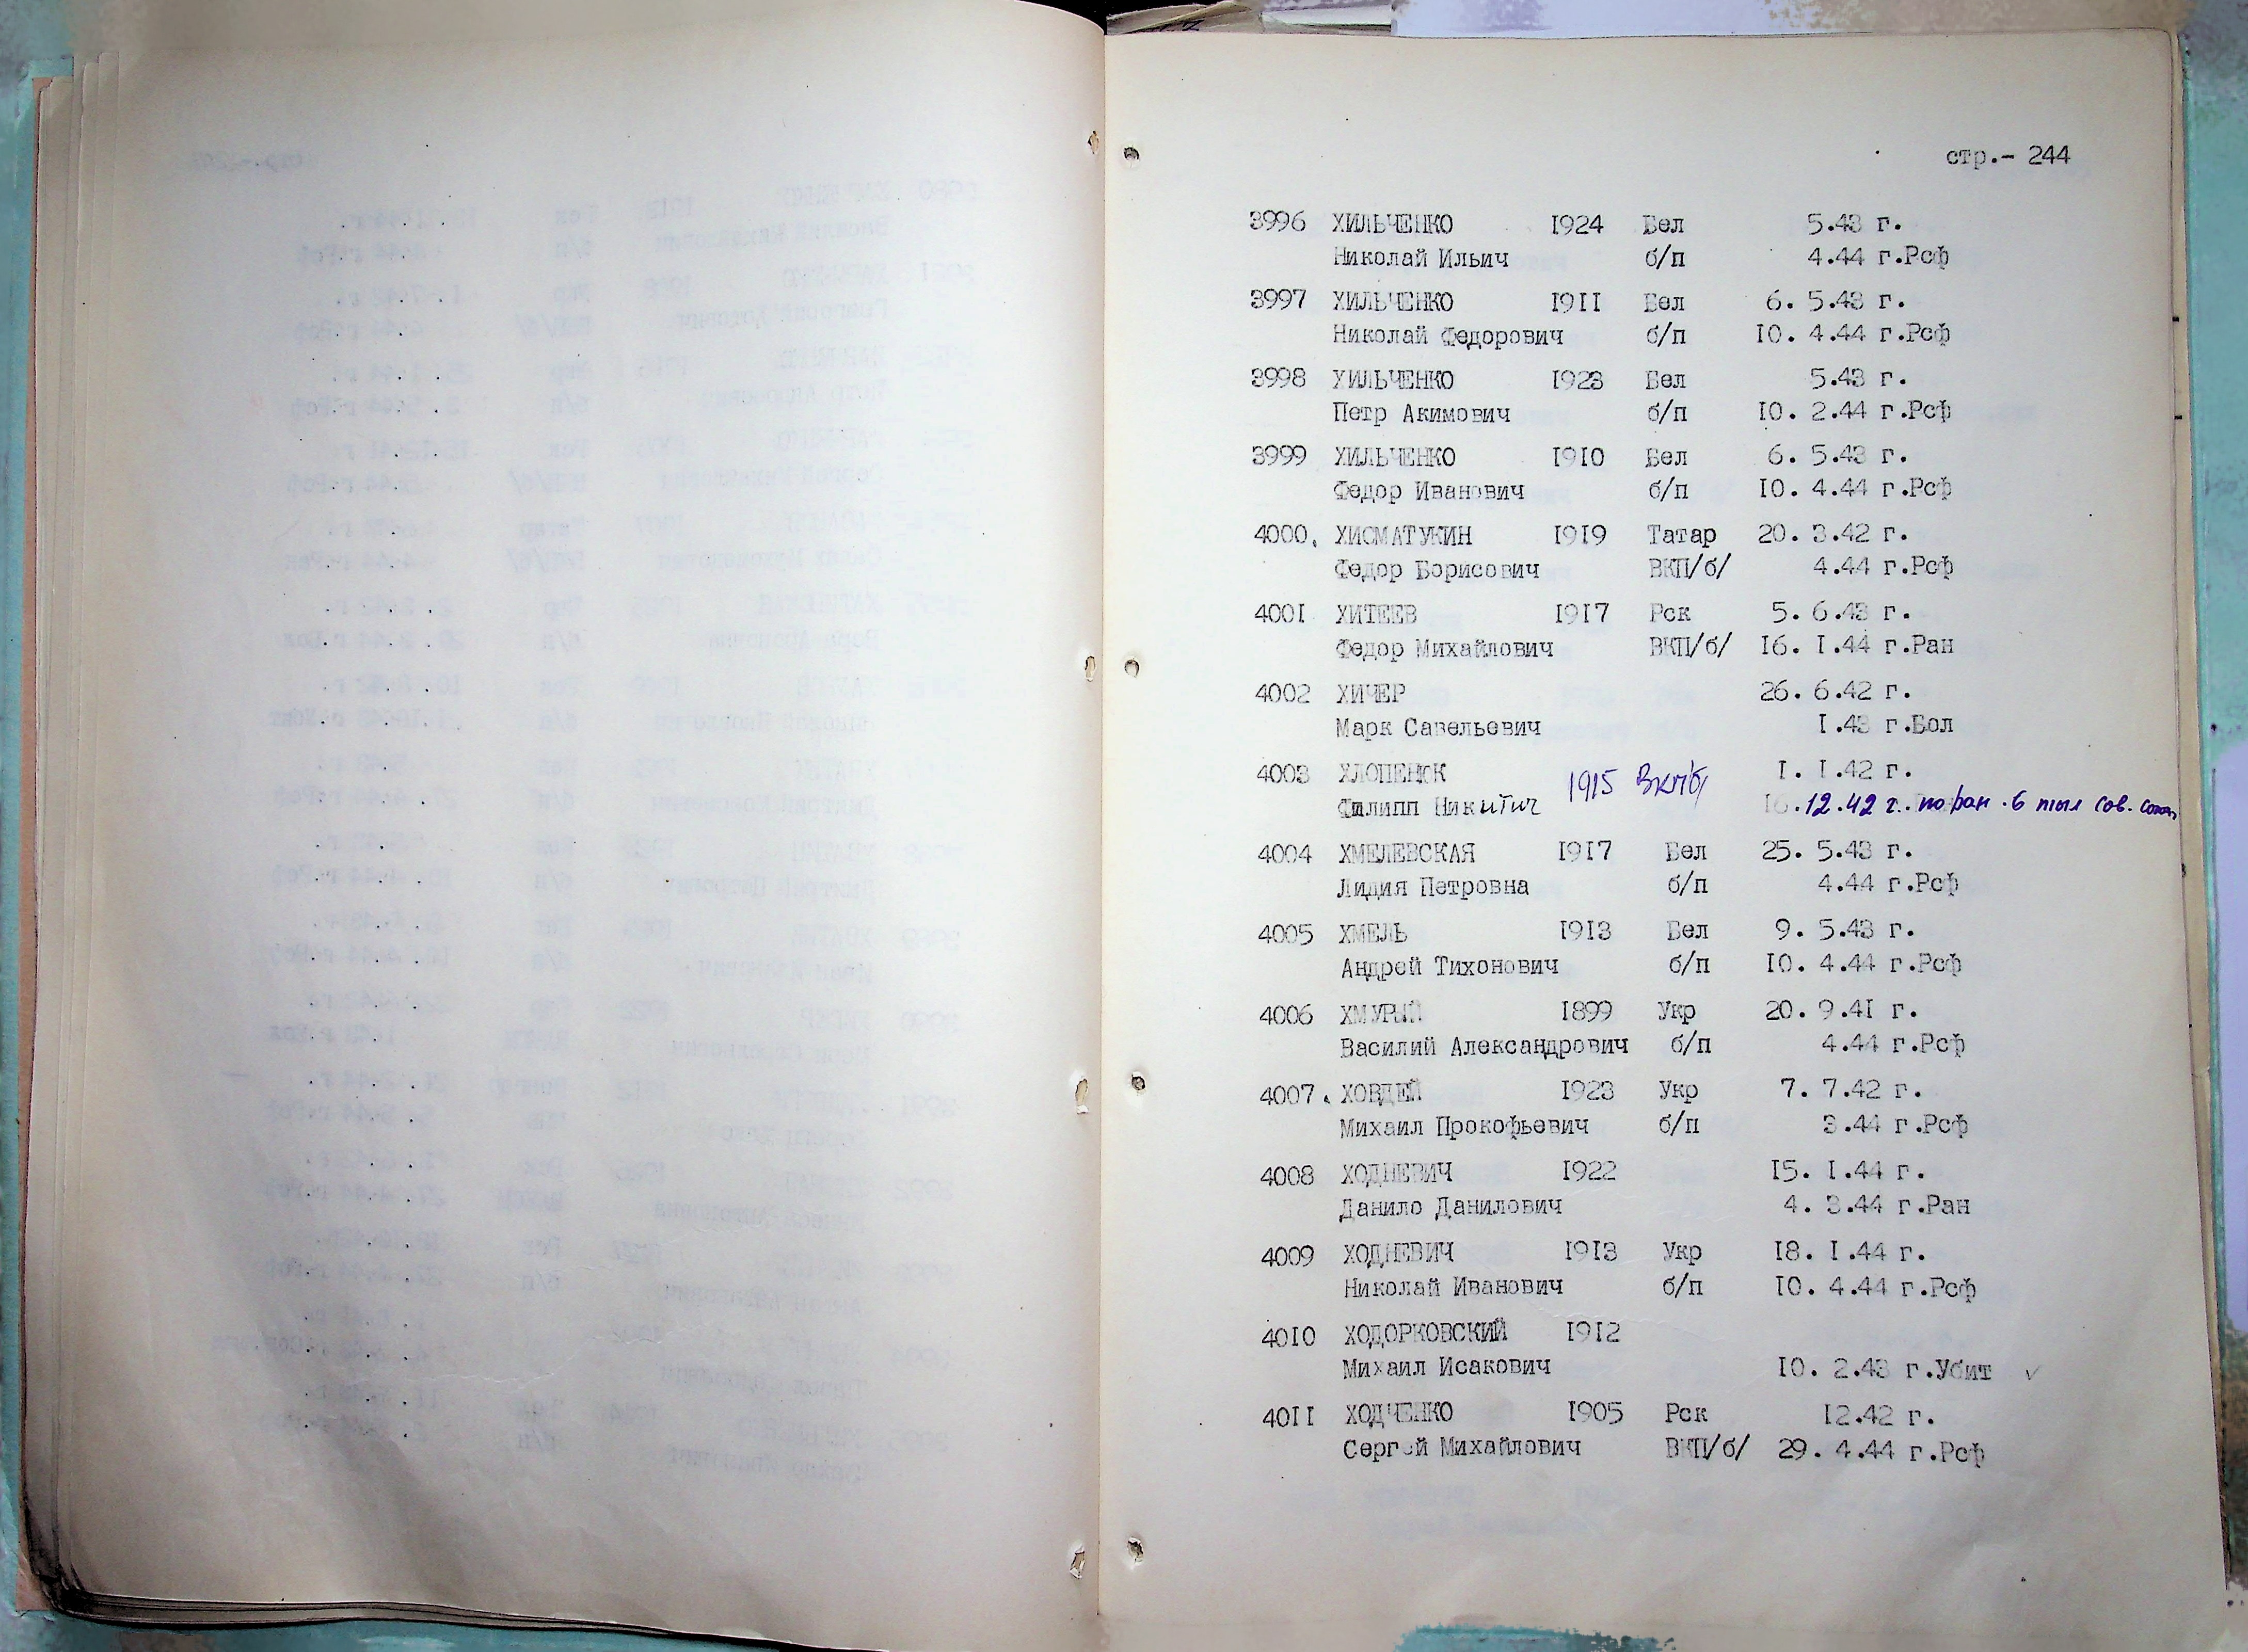 стр.- 244
3996 ХИЛЬЧЕНКО 1924 Бел 5.43 г.
Николай Ильич б/п 4.44 г.Рсф
3997 ХИЛЬЧЕНКО 1911 Бел 6. 5.43 г.
Николай Федорович б/п 10. 4.44 г.Рсф
3998 ХИЛЬЧЕНКО 1923 Бел 5.43 г.
Петр Акимович б/п 10. 2.44 г.Рсф
3999 ХИЛЬЧЕНКО 1910 Бел 6. 5.43 г.
Федор Иванович б/п 10. 4.44 г.Рсф
4000. ХИСМАТУКИН 1919 Татар 20. 3.42 г.
Федор Борисович ВКП/б/ 4.44 г.Рсф
4001 ХИТЕЕВ 1917 Рск 5. 6.43 г.
Федор Михайлович ВКП/б/ 16. 1.44 г.Ран
4002 ХИЧЕР 26. 6.42 г.
Марк Савельевич 1.43 г.Бол
4003 ХЛОПЕНОК 1915 ВКПб 1. 1.42 г.
Филипп Никитич 16.12.42 г. по ран. в тыл сов.
4004 ХМЕЛЕВСКАЯ 1917 Бел 25. 5.43 г.
Лидия Петровна б/п 4.44 г.Рсф
4005 ХМЕЛЬ 1913 Бел 9. 5.43 г.
Андрей Тихонович б/п 10. 4.44 г.Рсф
4006 ХМУРЫЙ 1899 Укр 20. 9.41 г.
Василий Александрович б/п 4.44 г.Рсф
4007. ХОВДЕЙ 1923 Укр 7. 7.42 г.
Михаил Прокофьевич б/п 3.44 г.Рсф
4008 ХОДНЕВИЧ 1922 15. 1.44 г.
Данило Данилович 4. 3.44 г.Ран
4009 ХОДНЕВИЧ 1913 Укр 18. 1.44 г.
Николай Иванович б/п 10. 4.44 г.Рсф
4010 ХОДОРКОВСКИЙ 1912
Михаил Исакович 10. 2.43 г.Убит ✓
4011 ХОДЧЕНКО 1905 Рск 12.42 г.
Сергей Михайлович ВКП/б/ 29. 4.44 г.Рсф